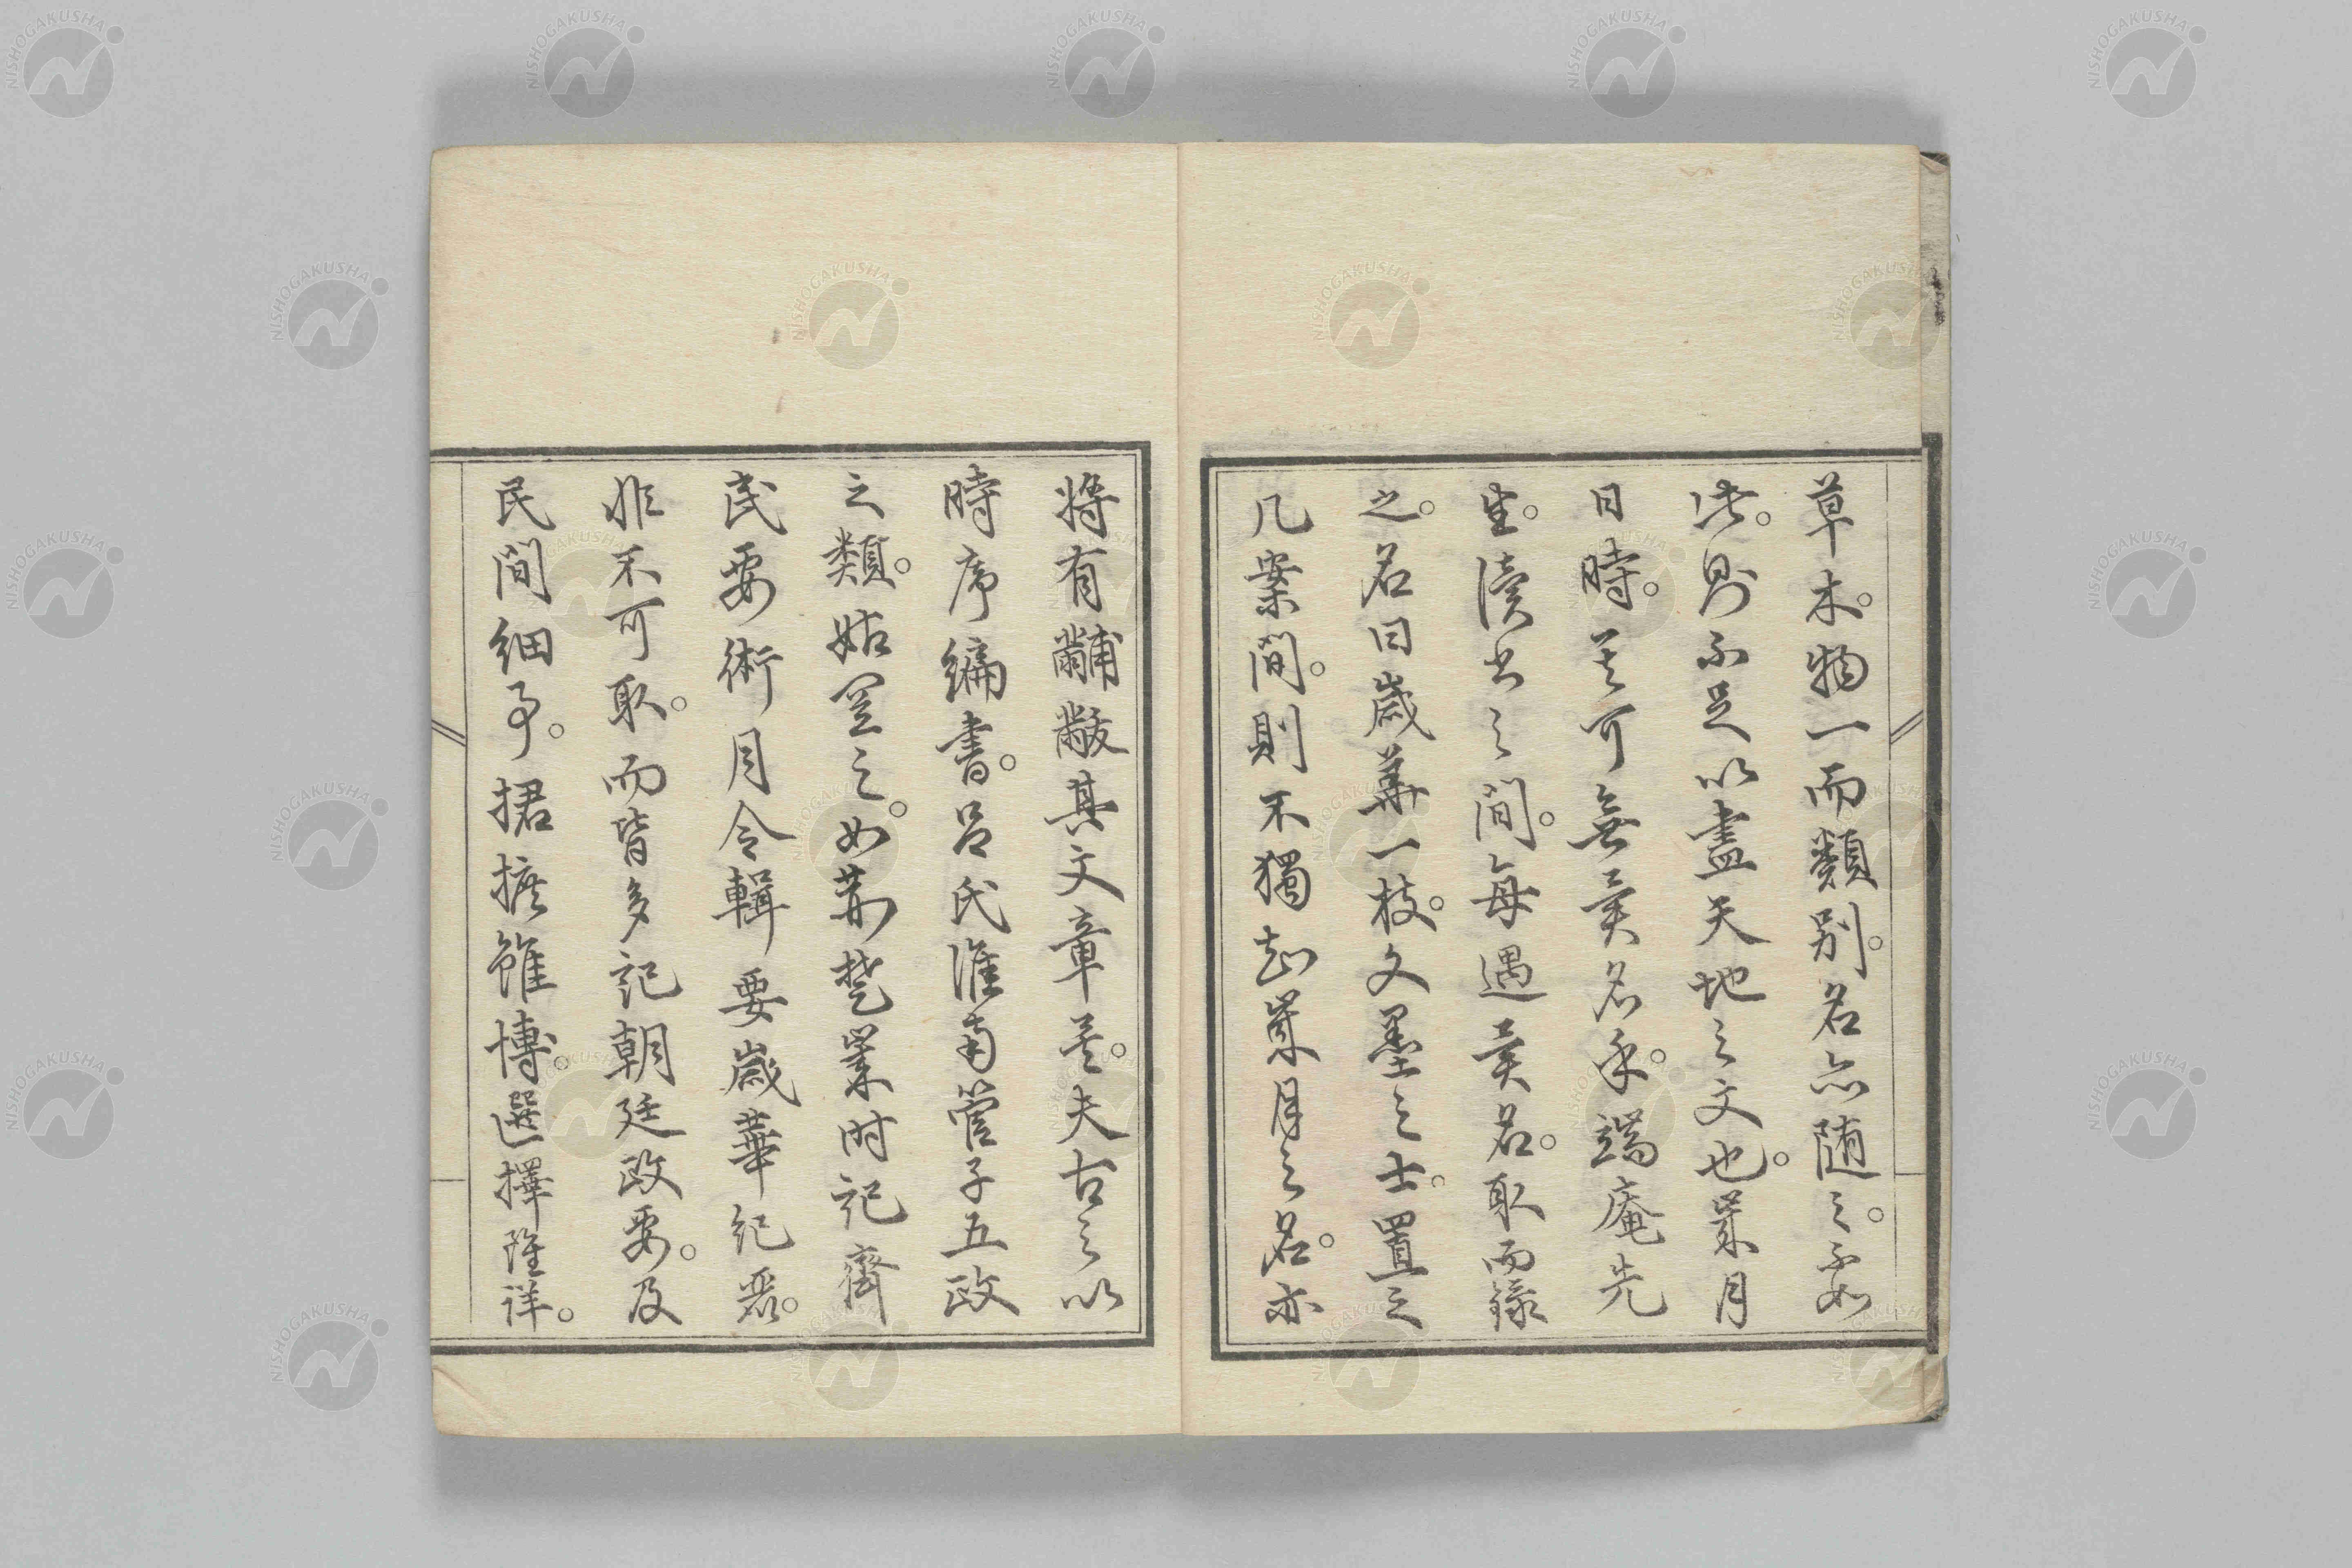 草木。物一而類別。名亦随之。不如
此。則不足以盡天地之文也。歳月
日時。其可無異名乎。端庵先
生。讀書之間。毎遇異名。取而録
之。名曰歳華一枝。文墨之士。置之
几案間。則不獨知歳月之名。亦
将有黼黻其文章矣。夫古之以
時序編書。呂氏淮南管子五政
之類。姑置之。如荊楚歳時記齊
民要術月令輯要歳華紀麗。
非不可取。而皆多記朝廷政要。及
民間細事。捃摭雖博。選擇雖詳。